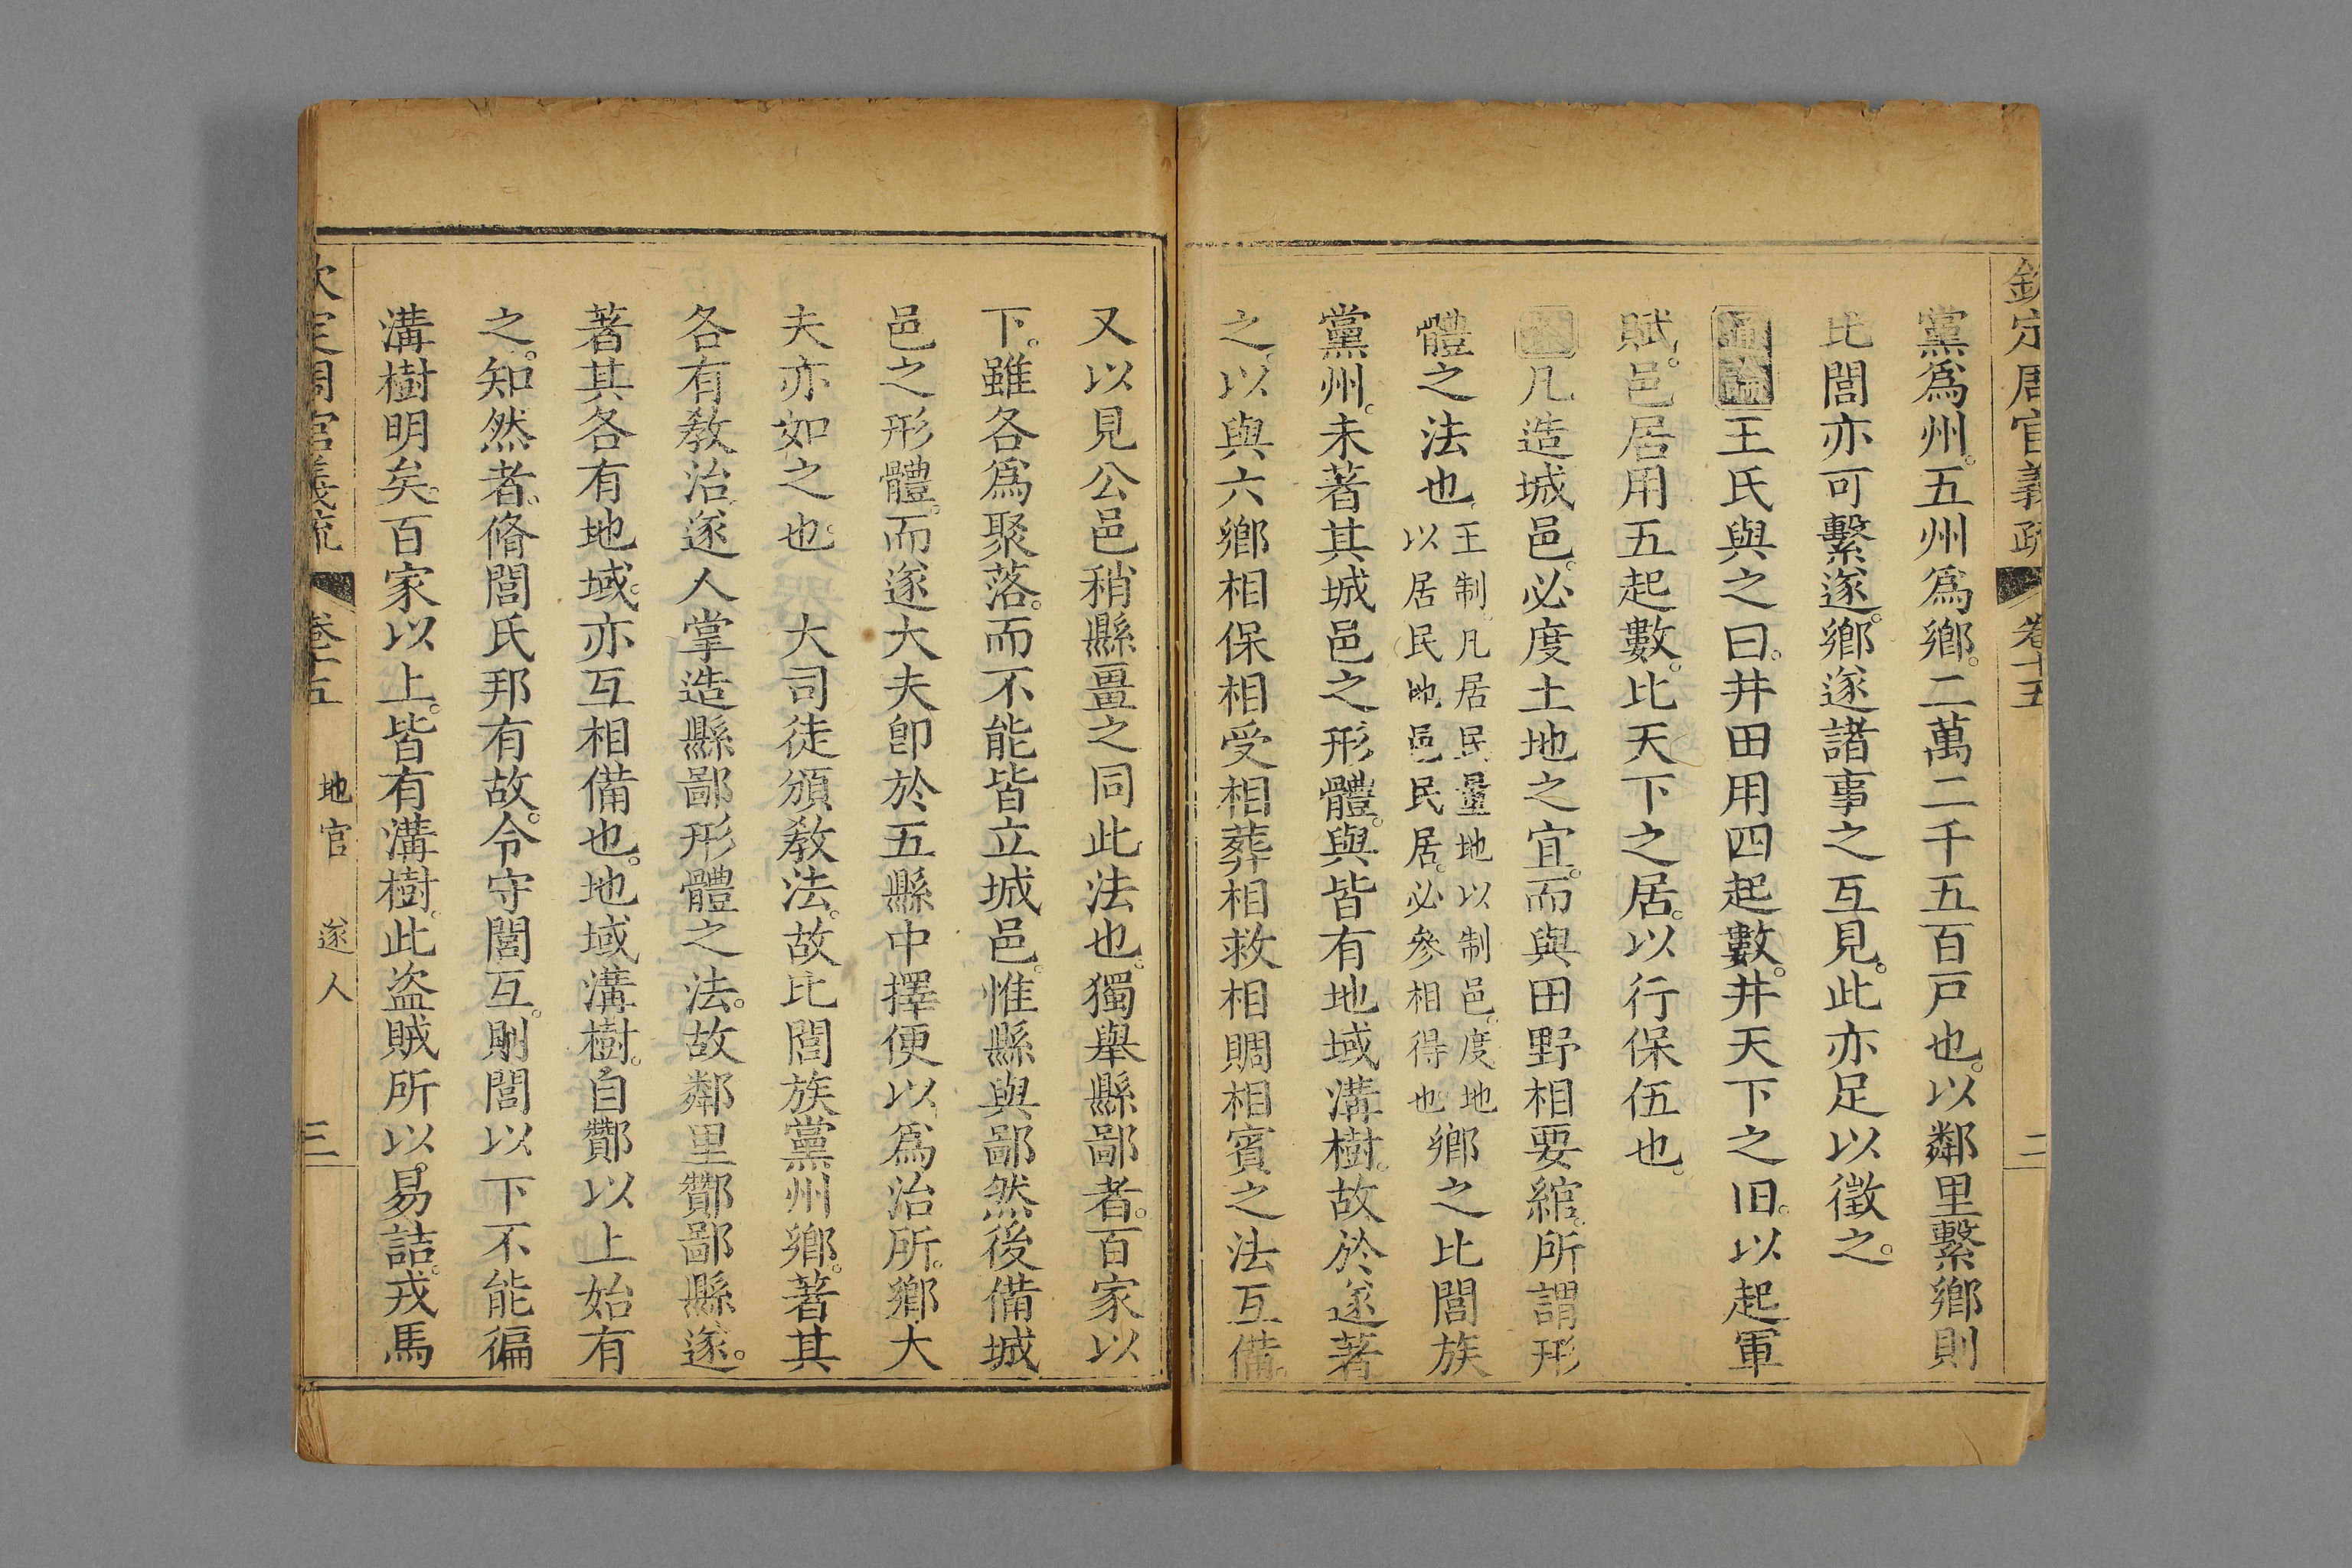 欽定周官義疏 卷十五 二
黨爲州。五州爲鄉。二萬二千五百戸也。以鄰里繫鄉則
比閭亦可繫遂。鄉遂諸事之互見。此亦足以徵之。
通論王氏與之曰。井田用四起數。井天下之旧。以起軍
賦。邑居用五起數。比天下之居。以行保伍也。
案凡造城邑。必度土地之宜。而與田野相要綰。所謂形
體之法也。王制。凡居民量地以制邑。度地
以居民地邑民居。必參相得也鄉之比閭族
黨州。未著其城邑之形體。與皆有地域溝樹。故於遂著
之。以與六鄉相保相受相葬相救相賙相賓之法互備。
又以見公邑稍縣畺之同此法也。獨舉縣鄙者。百家以
下。雖各爲聚落。而不能皆立城邑。惟縣與鄙然後備城
邑之形體。而遂大夫卽於五縣中擇便以爲治所。鄉大
夫亦如之也。 大司徒頒教法。故比閭族黨州鄉。著其
各有教治。遂人掌造縣鄙形體之法。故鄰里酇鄙縣遂。
著其各有地域。亦互相備也。地域溝樹。自酇以上始有
之。知然者。脩閭氏邦有故。令守閭互。則閭以下不能徧
溝樹明矣。百家以上。皆有溝樹。此盜賊所以易詰。戎馬
欽定周官義疏 卷十五 地官 遂人 三